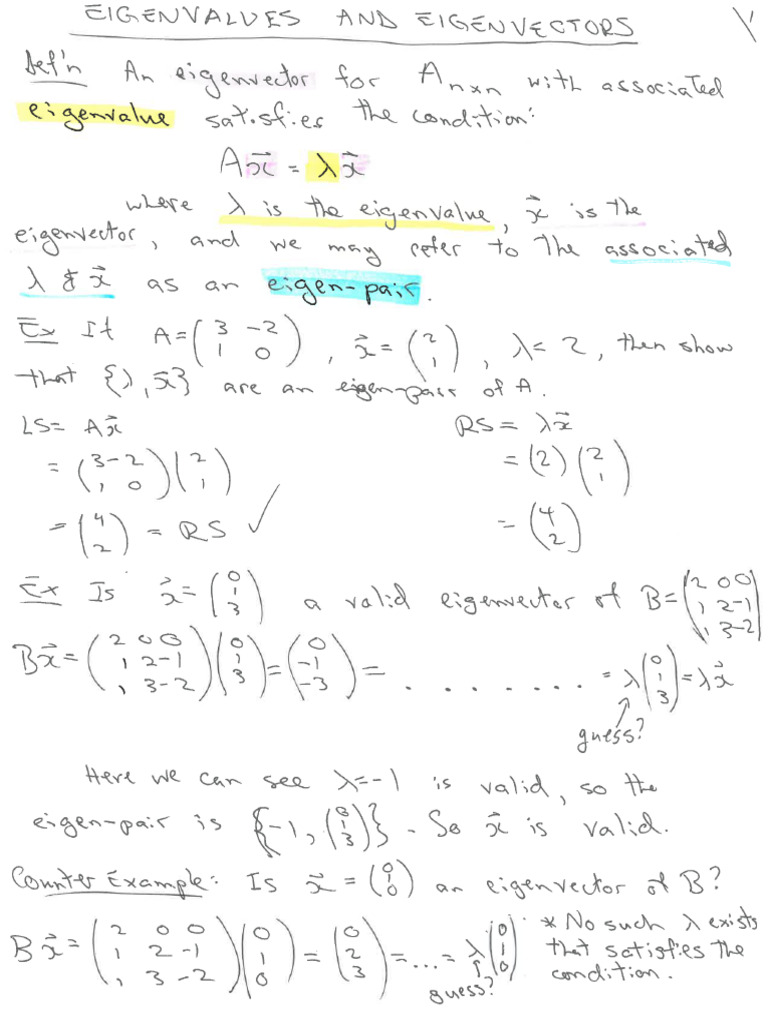 EIGENVALUES AND EIGENVECTORS
Def'n An eigenvector for Anxn with associated
eigenvalue satisfies the condition:
Ax⃗ = λx⃗
where λ is the eigenvalue, x⃗ is the
eigenvector, and we may refer to the associated
λ & x⃗ as an eigen-pair.
Ex If A = (3 -2; 1 0), x⃗ = (2; 1), λ = 2, then show
that {λ, x⃗} are an eigen-pair of A.
LS = Ax⃗ RS = λx⃗
= (3 -2; 1 0)(2; 1) = (2)(2; 1)
= (4; 2) = RS ✓ = (4; 2)
Ex Is x⃗ = (0; 1; 3) a valid eigenvector of B = (2 0 0; 1 2 -1; 1 3 -2)
Bx⃗ = (2 0 0; 1 2 -1; 1 3 -2)(0; 1; 3) = (0; -1; -3) = . . . . . . . . = λ(0; 1; 3) = λx⃗
guess?
Here we can see λ=-1 is valid, so the
eigen-pair is {-1, (0; 1; 3)}. So x⃗ is valid.
Counter Example: Is x⃗ = (0; 1; 0) an eigenvector of B?
Bx⃗ = (2 0 0; 1 2 -1; 1 3 -2)(0; 1; 0) = (0; 2; 3) = ... = λ(0; 1; 0) * No such λ exists
that satisfies the
condition.
guess?